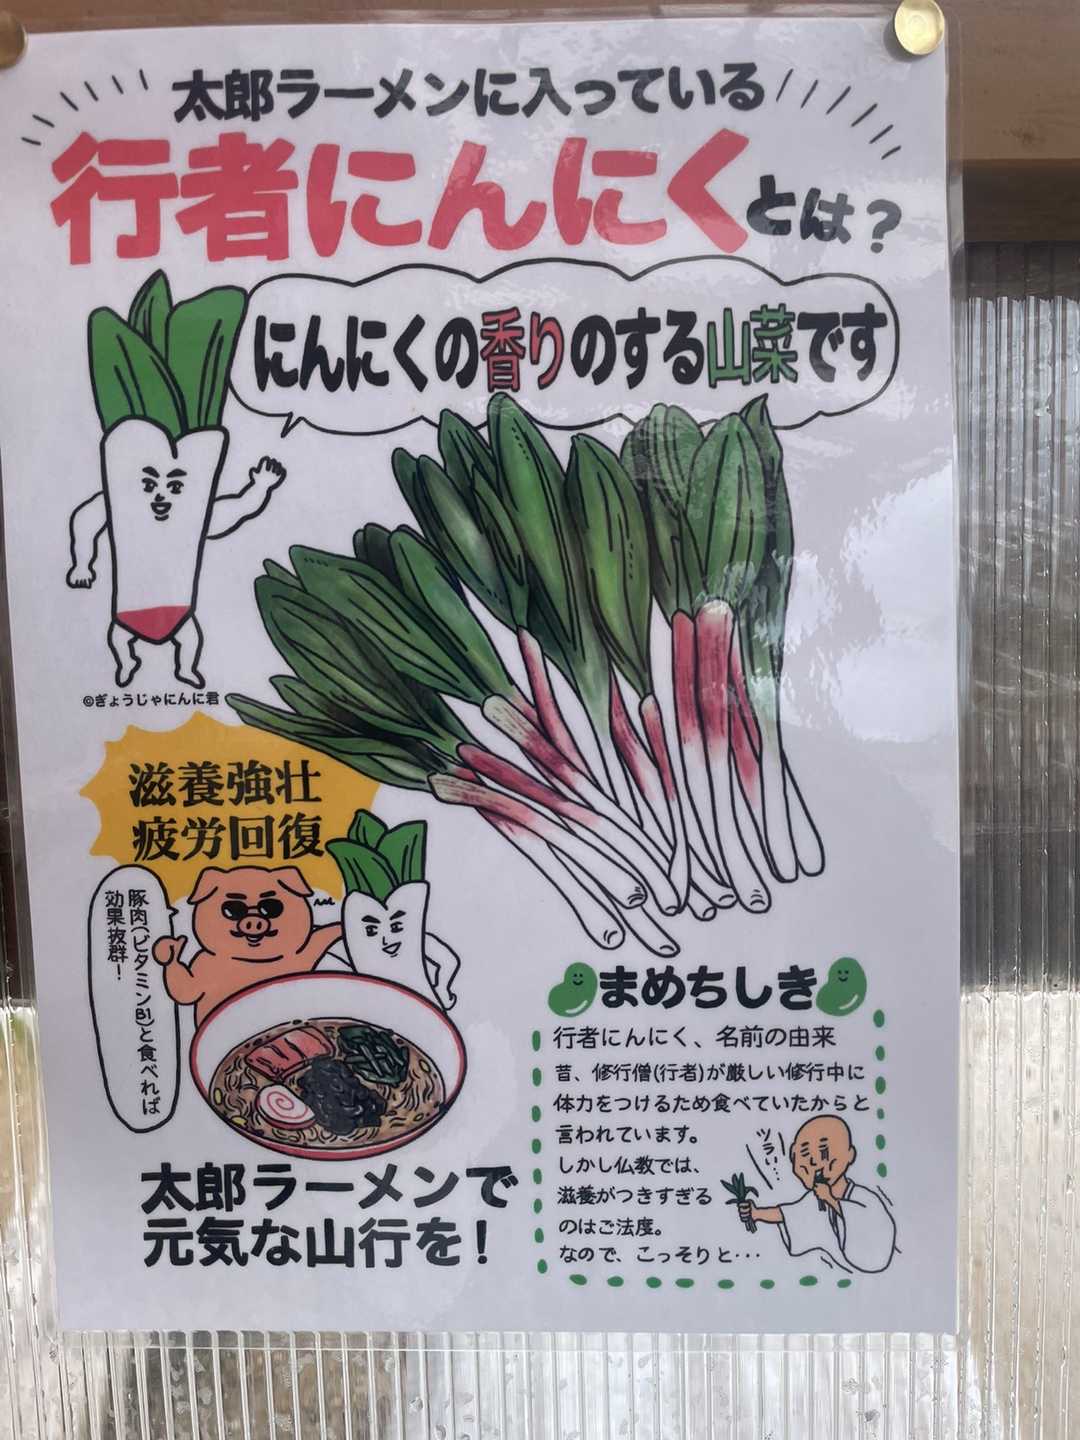 太郎ラーメンに入っている
行者にんにくとは?
にんにくの香りのする山菜です
©ぎょうじゃにんに君
滋養強壮
疲労回復
豚肉(ビタミンB1)と食べれば
効果抜群!
太郎ラーメンで
元気な山行を!
まめちしき
行者にんにく、名前の由来
昔、修行僧(行者)が厳しい修行中に
体力をつけるため食べていたからと
言われています。
しかし仏教では、
滋養がつきすぎる
のはご法度。
なので、こっそりと…
ツラい…